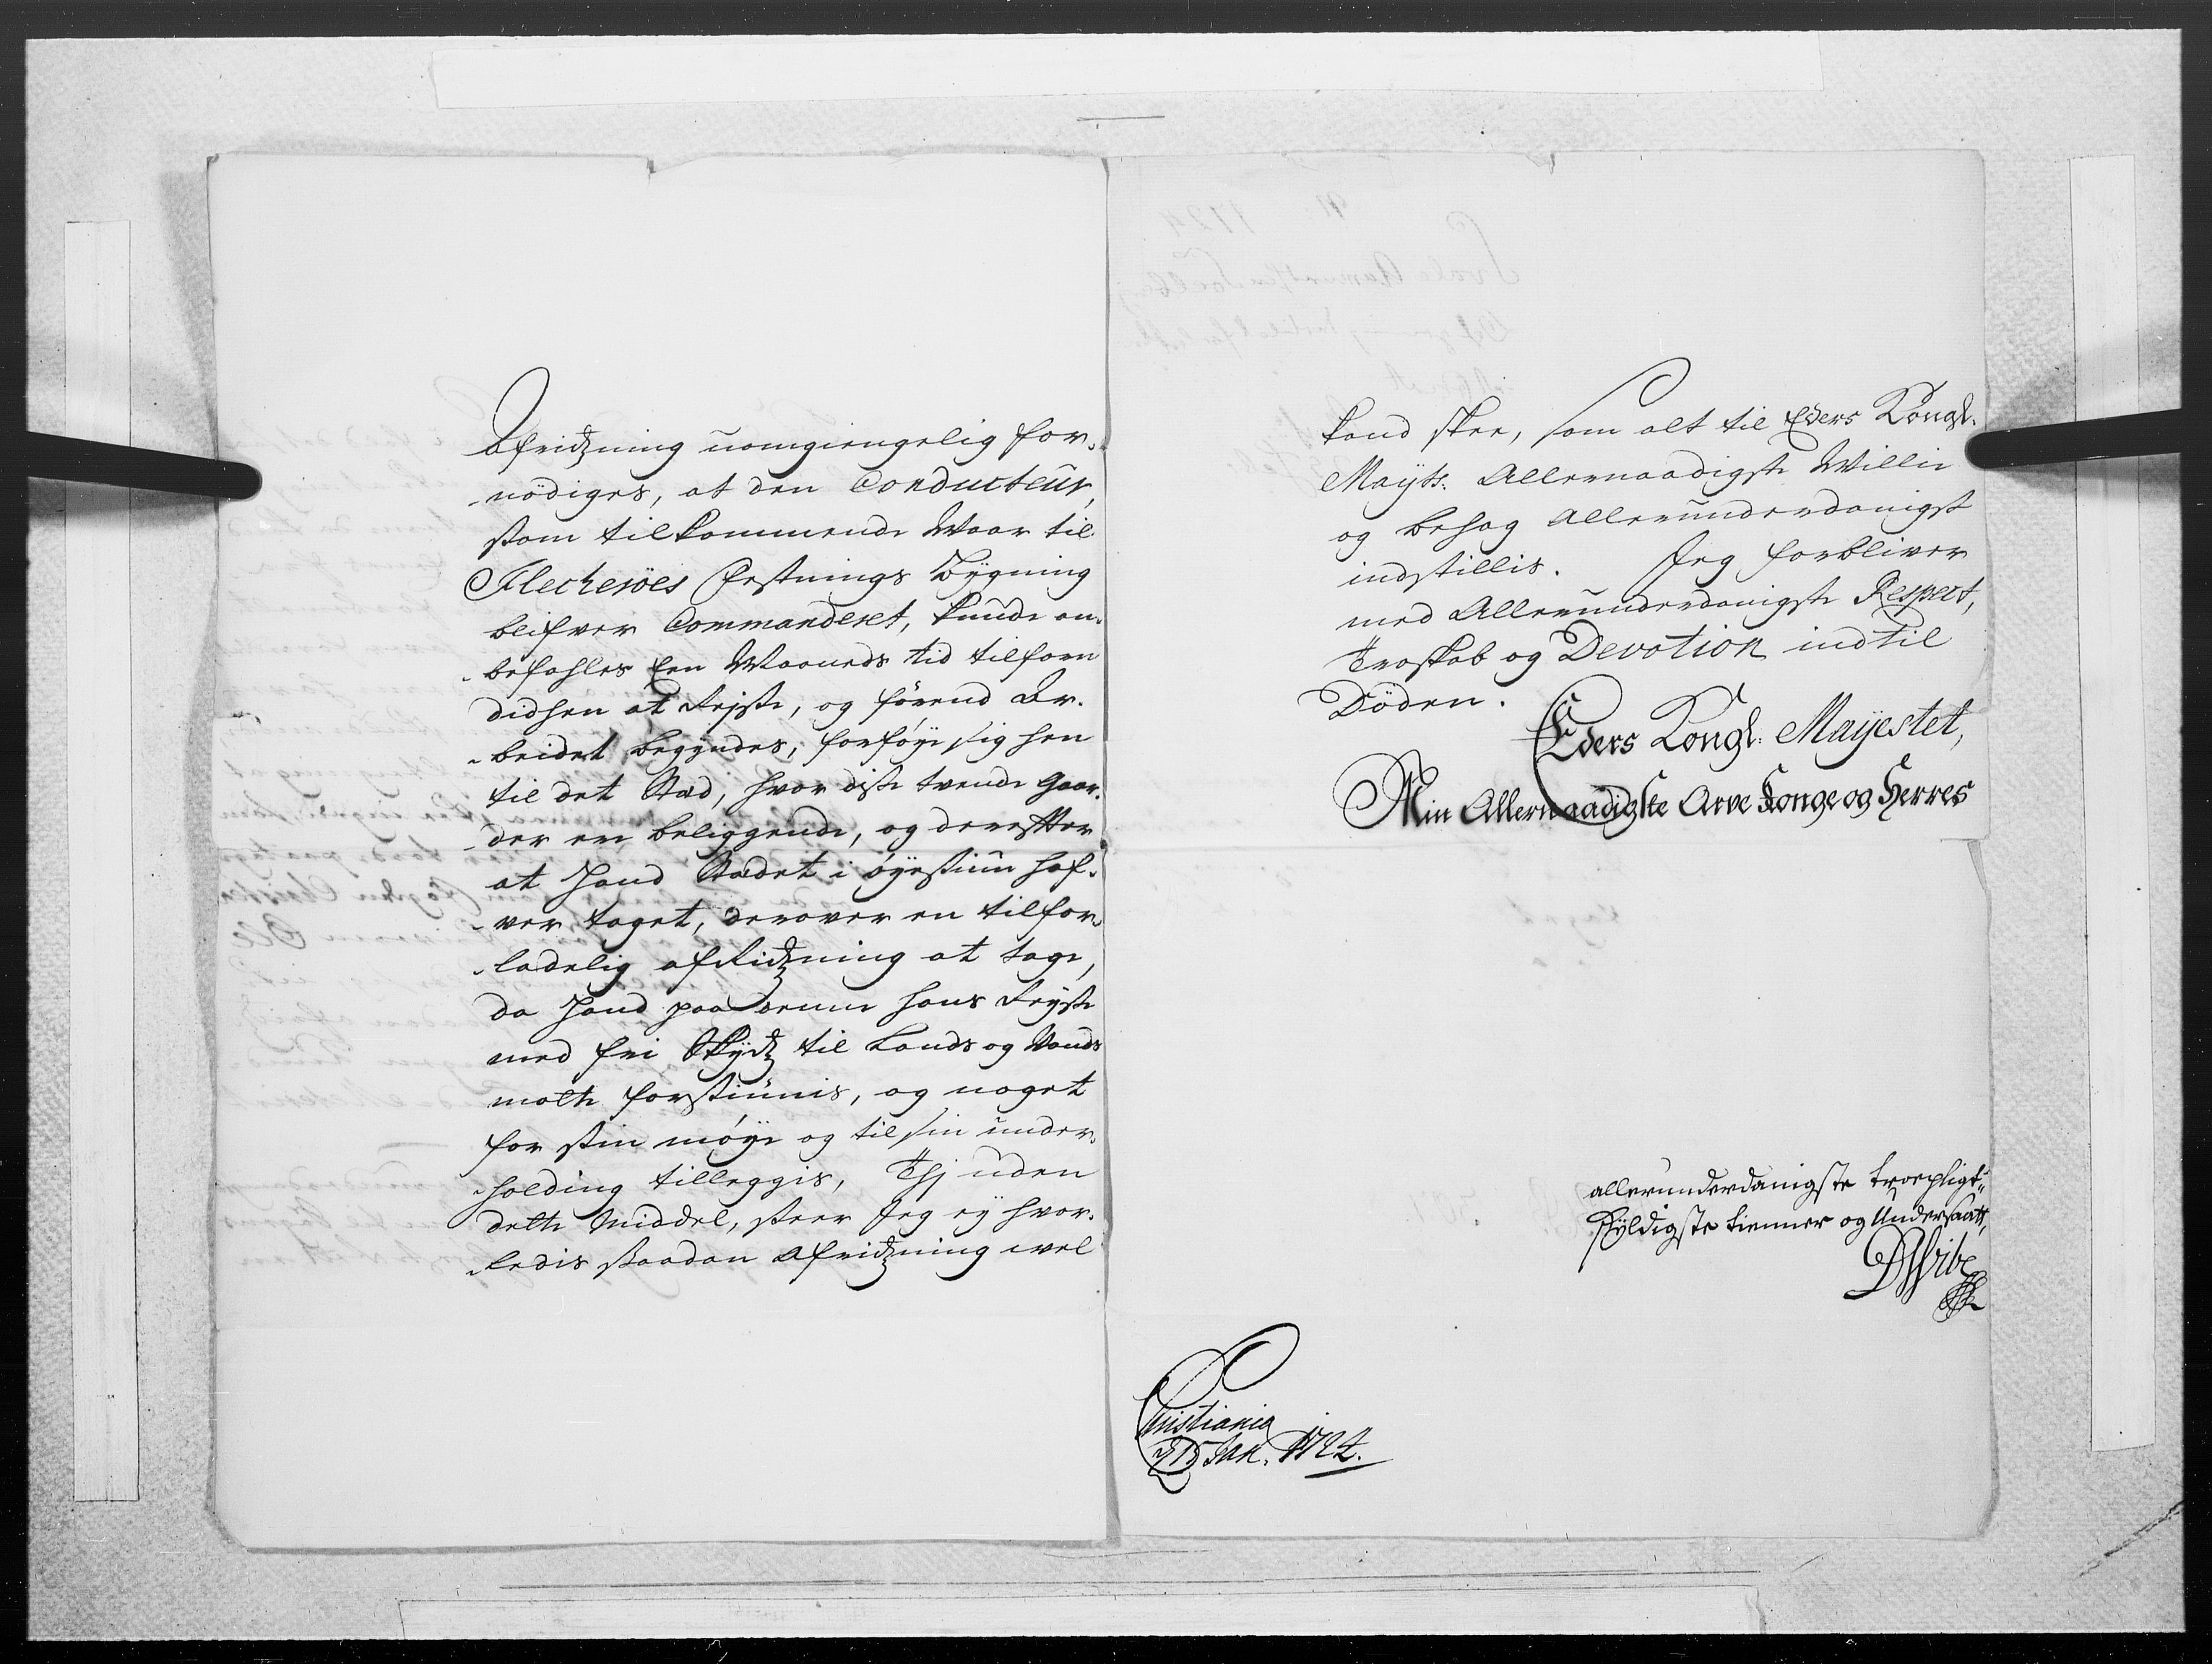 Afridzning uomgiengelig for-
nödiges, at den Conducteur,
som tilkommende Waar til
Fleckeröes Festnings Bygning
blifver Commanderet, kunde an-
befahles Een Maaneds tid tilforn
didhen at Rejse, og förend Ar-
beidet begyndes, forföye sig hen
til det Stæd, hvor disse tvende Gaar-
der ere beliggende, og derefter
at Hand Stædet i öyesiun haf-
ver taget, derover en tilfor-
ladelig afRidzning at tage,
da Hand paa denne hans Reyse
med fri Skydz til Lands og Vands
motte forsiunis, og noget
for sin möye og til sin under-
holding tilleggis, Thj uden
dette middel, seer Jeg ey hvor-
ledis saadan Afridzning vel
kand skee, som alt til Eders Kongl.
Mayts: Allernaadigste Willie
og behag Allerunderdanigst
indstillis. Jeg forbliver
med Allerunderdanigste Respect,
Troskab og Devotion indtil
Döden.
Eders Kongl: Mayestet,
Min Allernaadigste Arve Konge og Herres
allerunderdanigste troepligt-
skyldigste tienner og Undersaatt,
DVibe
Christiania
Jan. 1724.